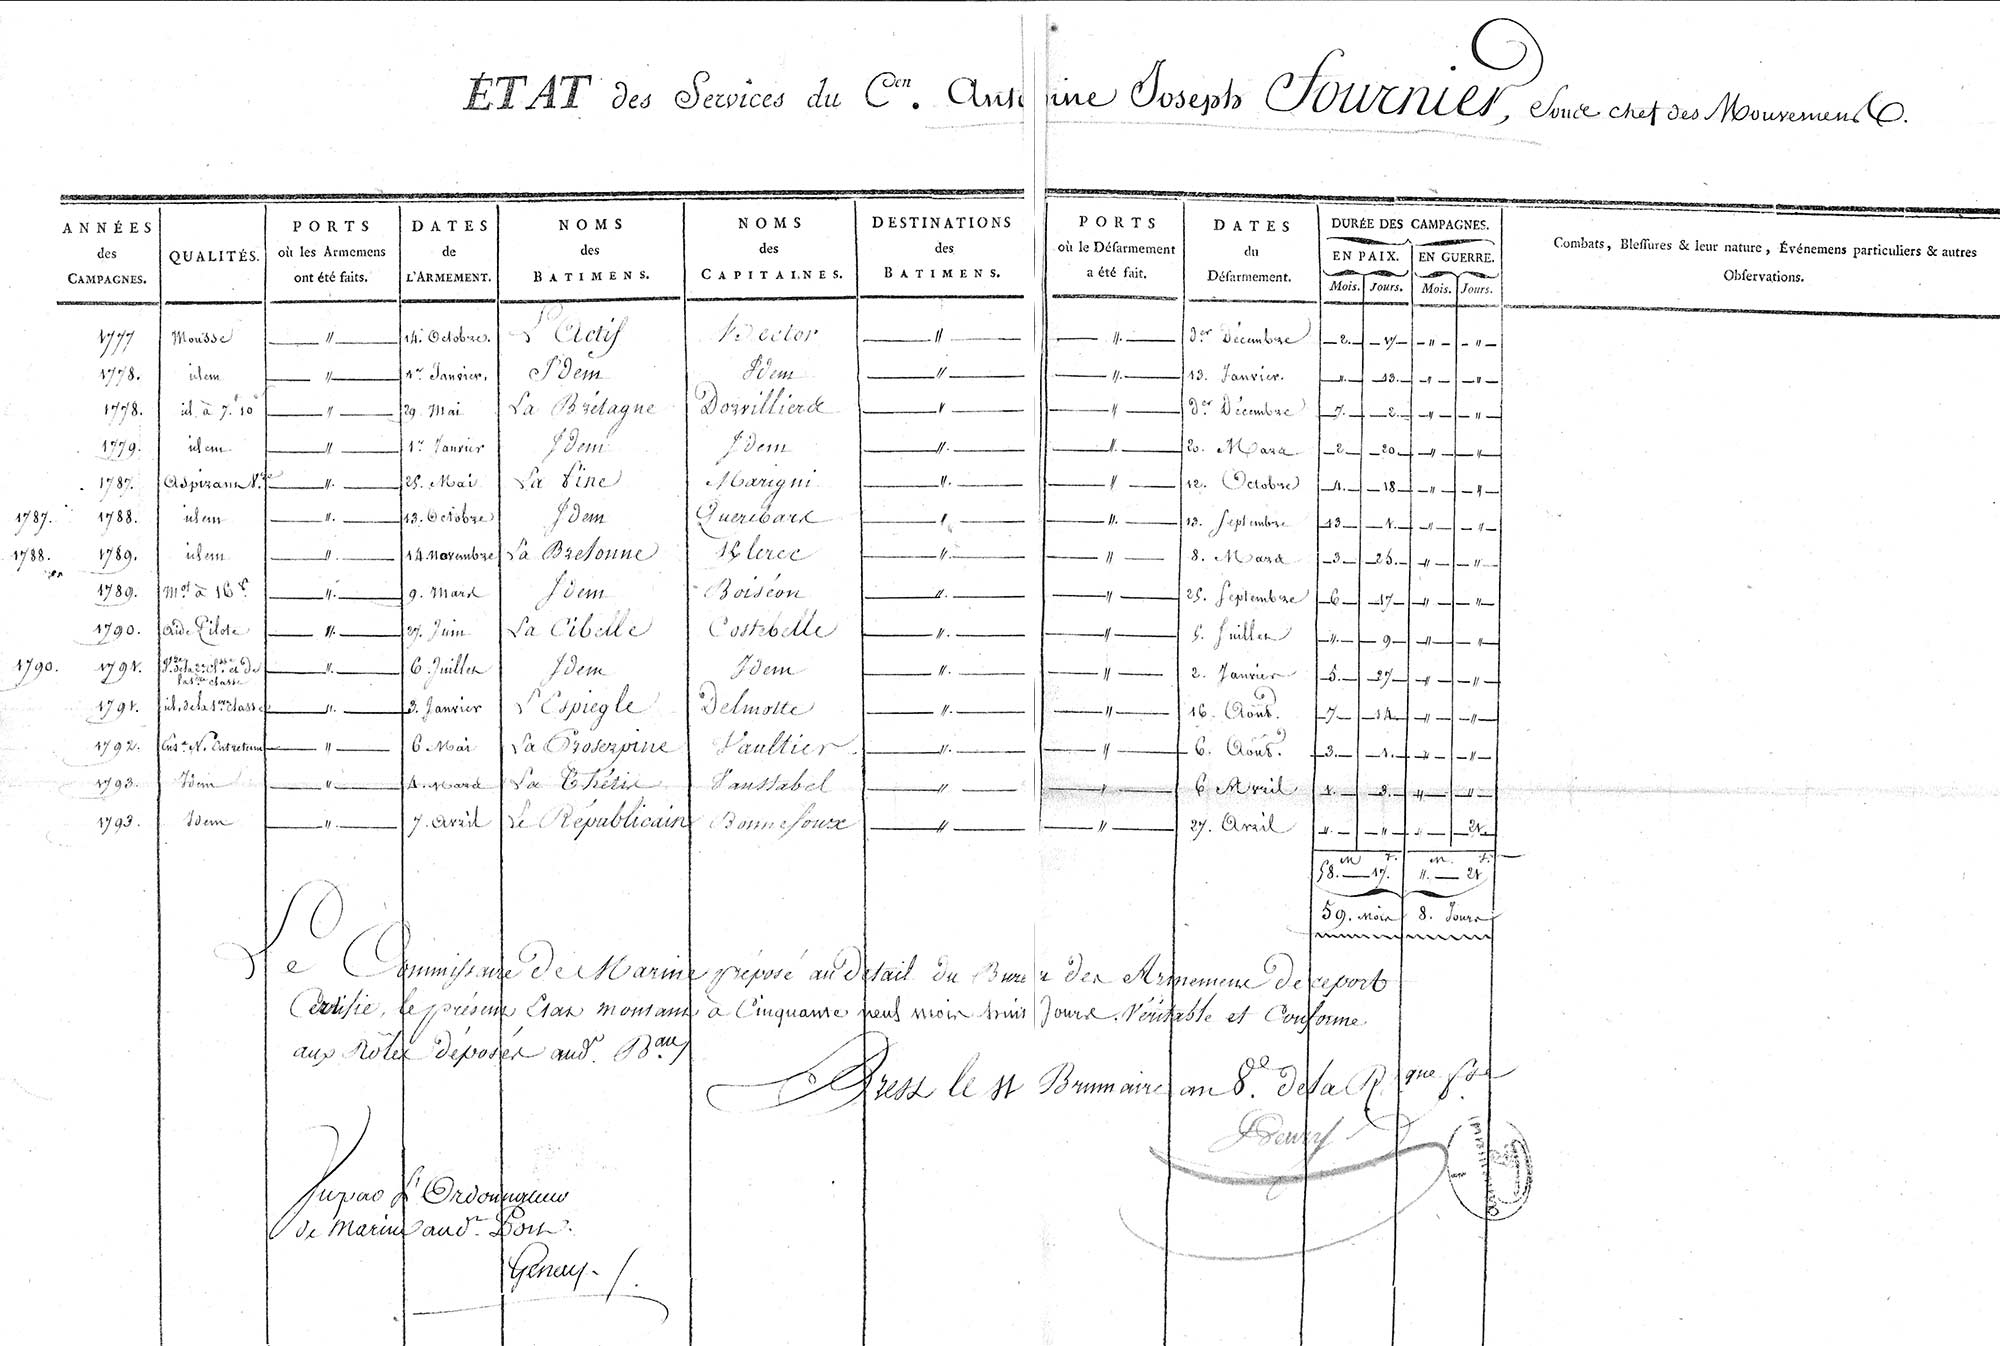 ÉTAT des Services du C.en Antoine Joseph Fournier, Sous chef des Mouvemens &.
ANNÉES des CAMPAGNES. QUALITÉS. PORTS où les Armemens ont été faits. DATES de L'ARMEMENT. NOMS des BATIMENS. NOMS des CAPITAINES. DESTINATIONS des BATIMENS. PORTS où le Désarmement a été fait. DATES du Désarmement. DURÉE DES CAMPAGNES. EN PAIX. Mois. Jours. EN GUERRE. Mois. Jours. Combats, Blessures & leur nature, Événemens particuliers & autres Observations.
1777 Mousse " 14. Octobre. L'Actif Hector " " d.er Décembre 2. 17 " "
1778. idem " 1.er Janvier. Idem Idem " " 13. Janvier. " 13. " "
1778. id. à 7.# 10 " 29. Mai La Brétagne Dorvilliers " " d.er Décembre 7. 2. " "
1779. idem " 1.er Janvier Idem Idem " " 20. Mars 2 20 " "
1787. Aspirant " 25. Mai La Fine Marigni " " 12. Octobre 4. 18 " "
1787. 1788. idem " 13. Octobre Idem " " 13. Septembre 13 1. " "
1788. 1789. idem " 14 novembre La Bretonne Klerec " " 8. Mars 3 25. " "
1789. M.ot à 16# " 9. Mars Idem Boiséon " " 25. Septembre 6 17 " "
1790. Aide Pilote " 27. Juin La Cibelle Costebelle " " 5. Juillet " 9 " "
1790. 1791. " 6. Juillet Idem Idem " " 2. Janvier 5. 27 " "
1791. id. de la 1.ere classe " 3. Janvier L'Espiégle Delmotte " " 16. Août. 7 14 " "
1792. Ens.e N. Entretenu " 6 Mai La Proserpine Vaultier. " " 6. Août. 3. 1. " "
1793. Idem " 4. Mars La Thétis Vanstabel " " 6 Avril 1. 3. " "
1793. Idem " 7. Avril Le Républicain Bonnefoux " " 27. Avril " " " 21.
M J. M. J.
58. 17. " 21
59. Mois 8. Jours
Le Commissaire de Marine préposé au détail du Bureau des Armemens de ce port
Certifie, le présent Etat montant à Cinquante neuf mois huit Jours. Véritable et Conforme
aux Rôles déposés aud.t B.au
Brest le 11 Brumaire an 8.e de la R.que f.se
Vu par L'Ordonnateur
de Marine aud.t Port.